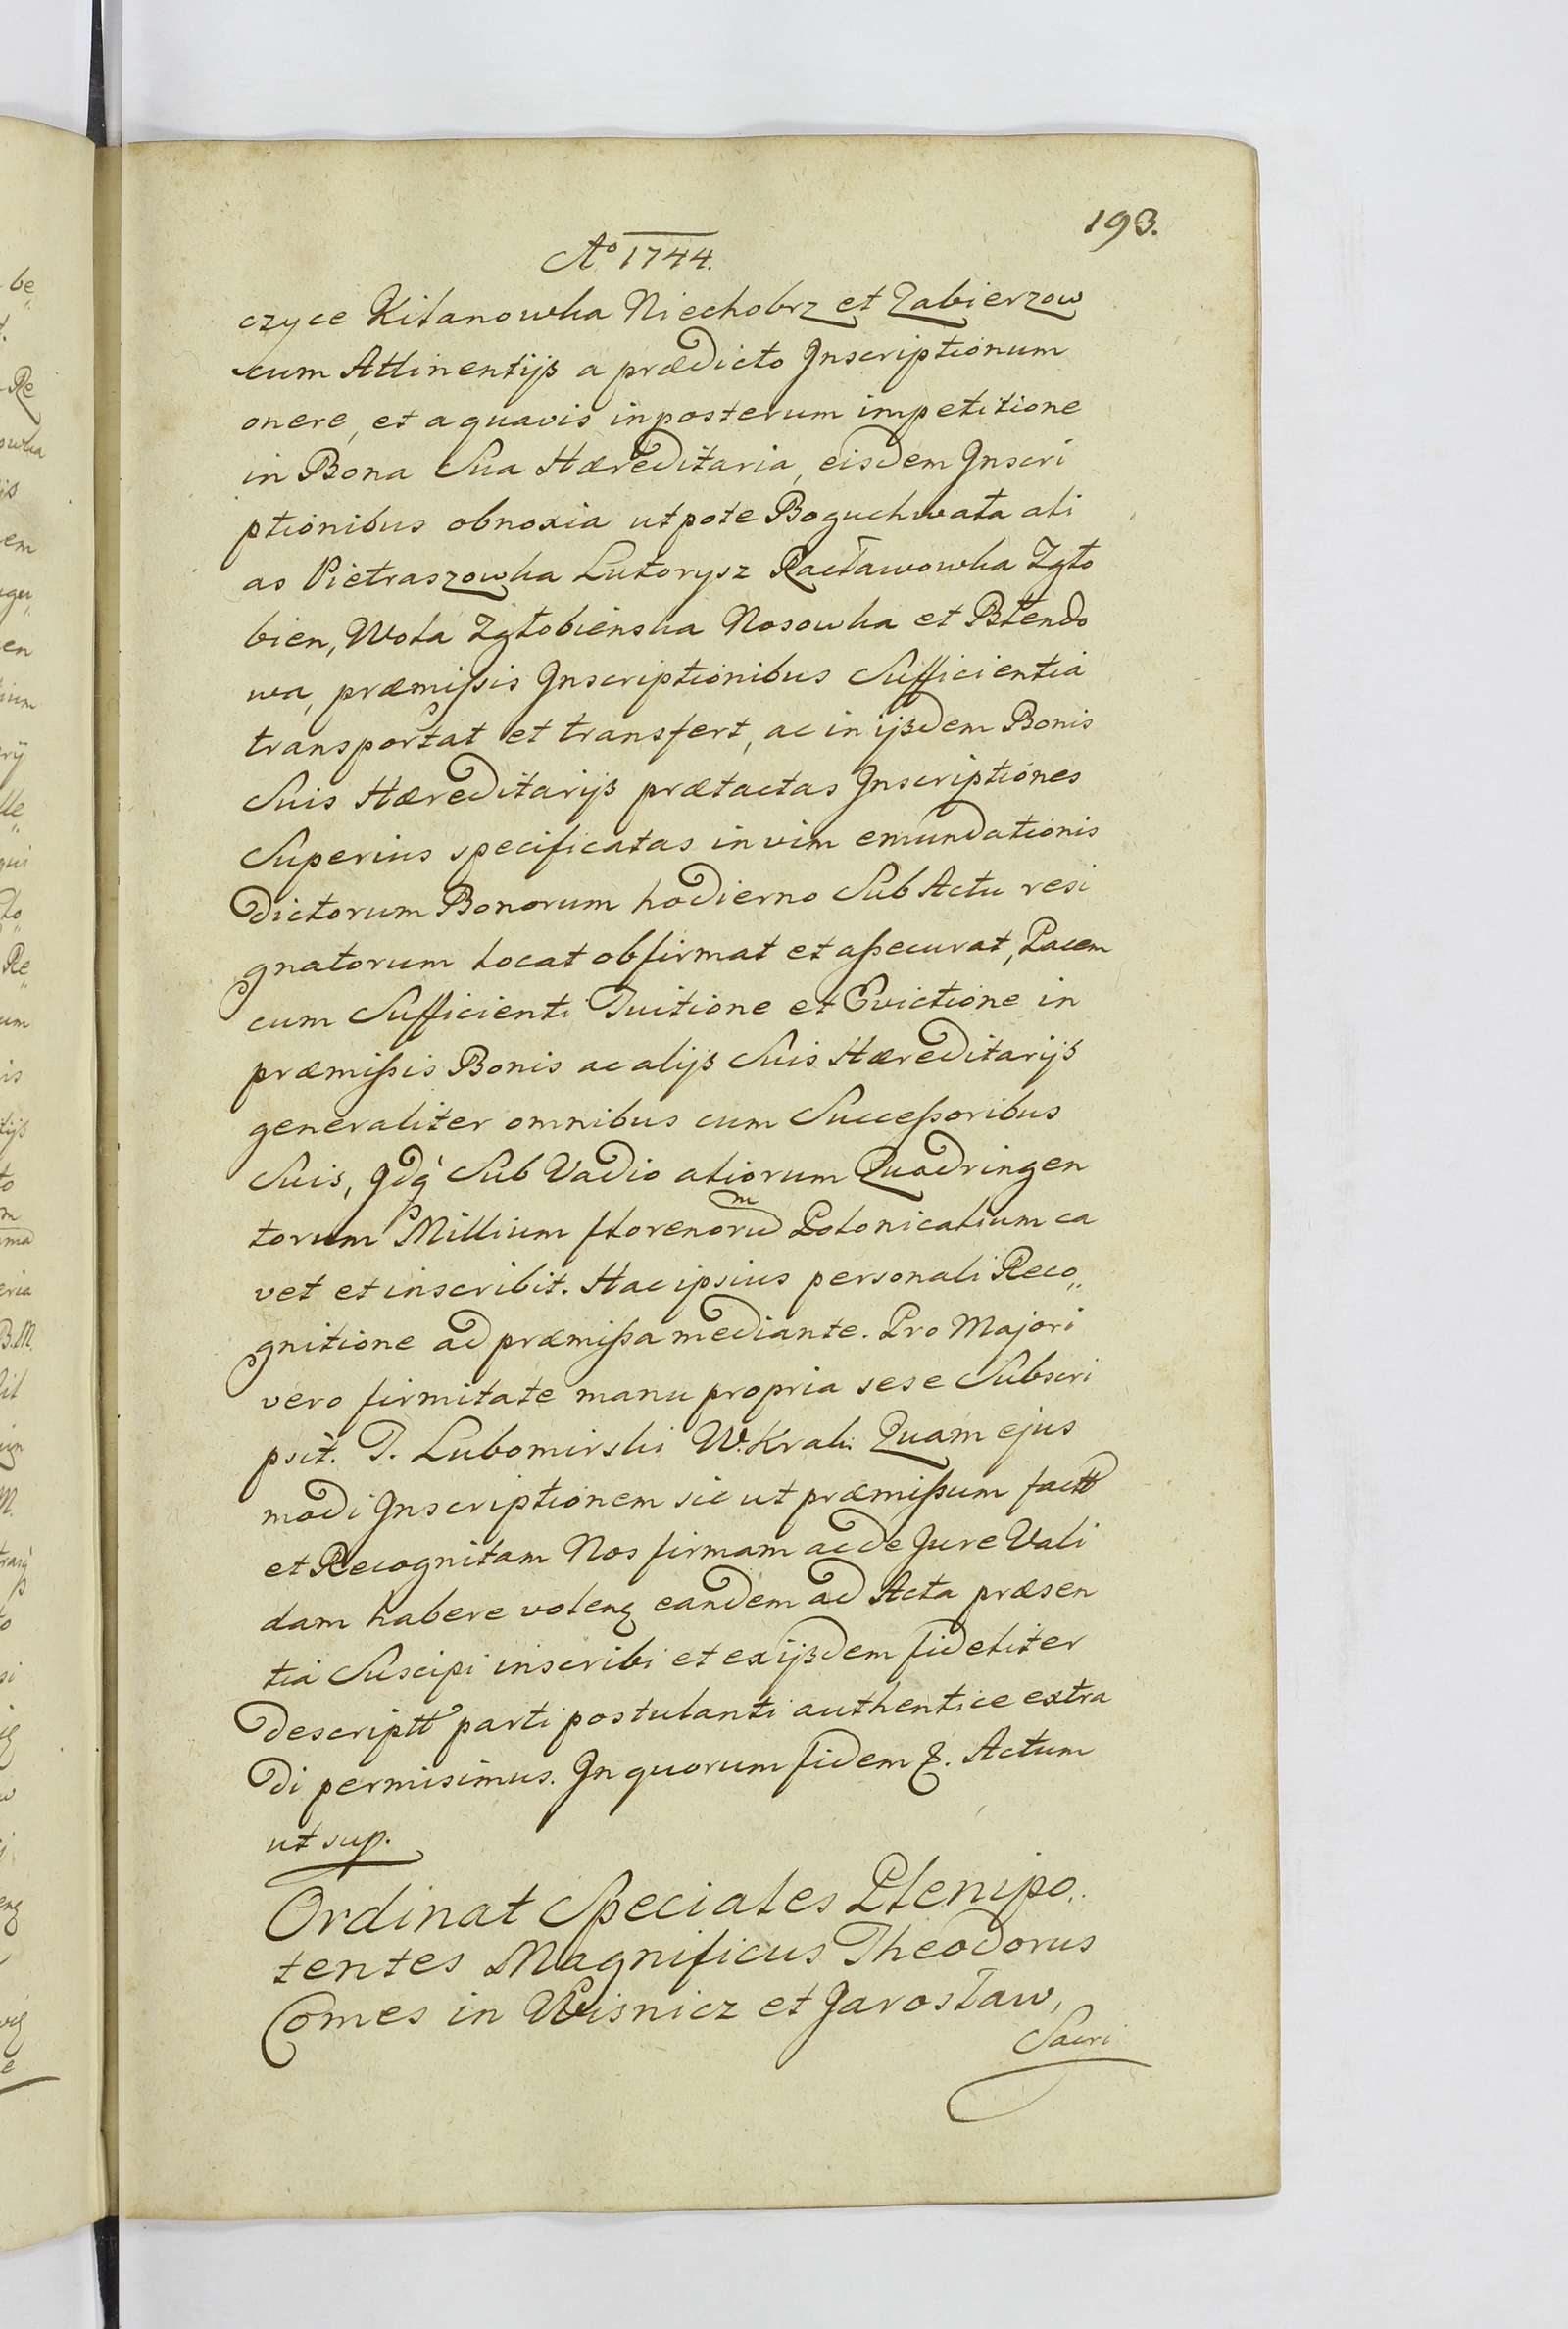 193.
Aº 1744.
czyce Kilanowka Niechobrz et Zabierzow
cum Attinentijs a prædicto Inscriptionum
onere, et aquavis inposterum impetitione
in Bona Sua Hæreditaria, eisdem Inscri
ptionibus obnoxia utpote Boguchwała ali
as Pietraszowka Lutorysz Racławowka Zgło
bien, Wola Zgłobienska Nosowka et Błendo
wa, præmissis Inscriptionibus Sufficientia
transportat et transfert, ac in ijsdem Bonis
Suis Hæreditarijs prætactas Inscriptiones
Superius specificatas in vim emundationis
dictorum Bonorum hodierno Sub Actu resi
gnatorum locat obfirmat et assecurat, Pacem
cum Sufficienti Tuitione et Evictione in
præmissis Bonis ac alijs Suis Hæreditarijs
generaliter omnibus cum Successoribus
Suis, qdq Sub Vadio aliorum Quadringen
torum Millium florenorum Polonicalium ca
vet et inscribit. Hac ipsius personali Reco„
gnitione ad præmissa mediante. Pro Majori
vero firmitate manu propria sese Subscri
psit. T. Lubomirski W. Krak: Quam ejus
modi Inscriptionem sic ut præmissum factt
et Recognitam Nos firmam ac de Jure Vali
dam habere volenq eandem ad Acta præsen
tia Suscipi inscribi et ex ijsdem fideliter
descriptt parti postulanti authentice extra
di permisimus. In quorum fidem &. Actum
ut sup.
Ordinat Speciales Plenipo„
tentes Magnificus Theodorus
Comes in Wisnicz et Jarosław,
Sacri